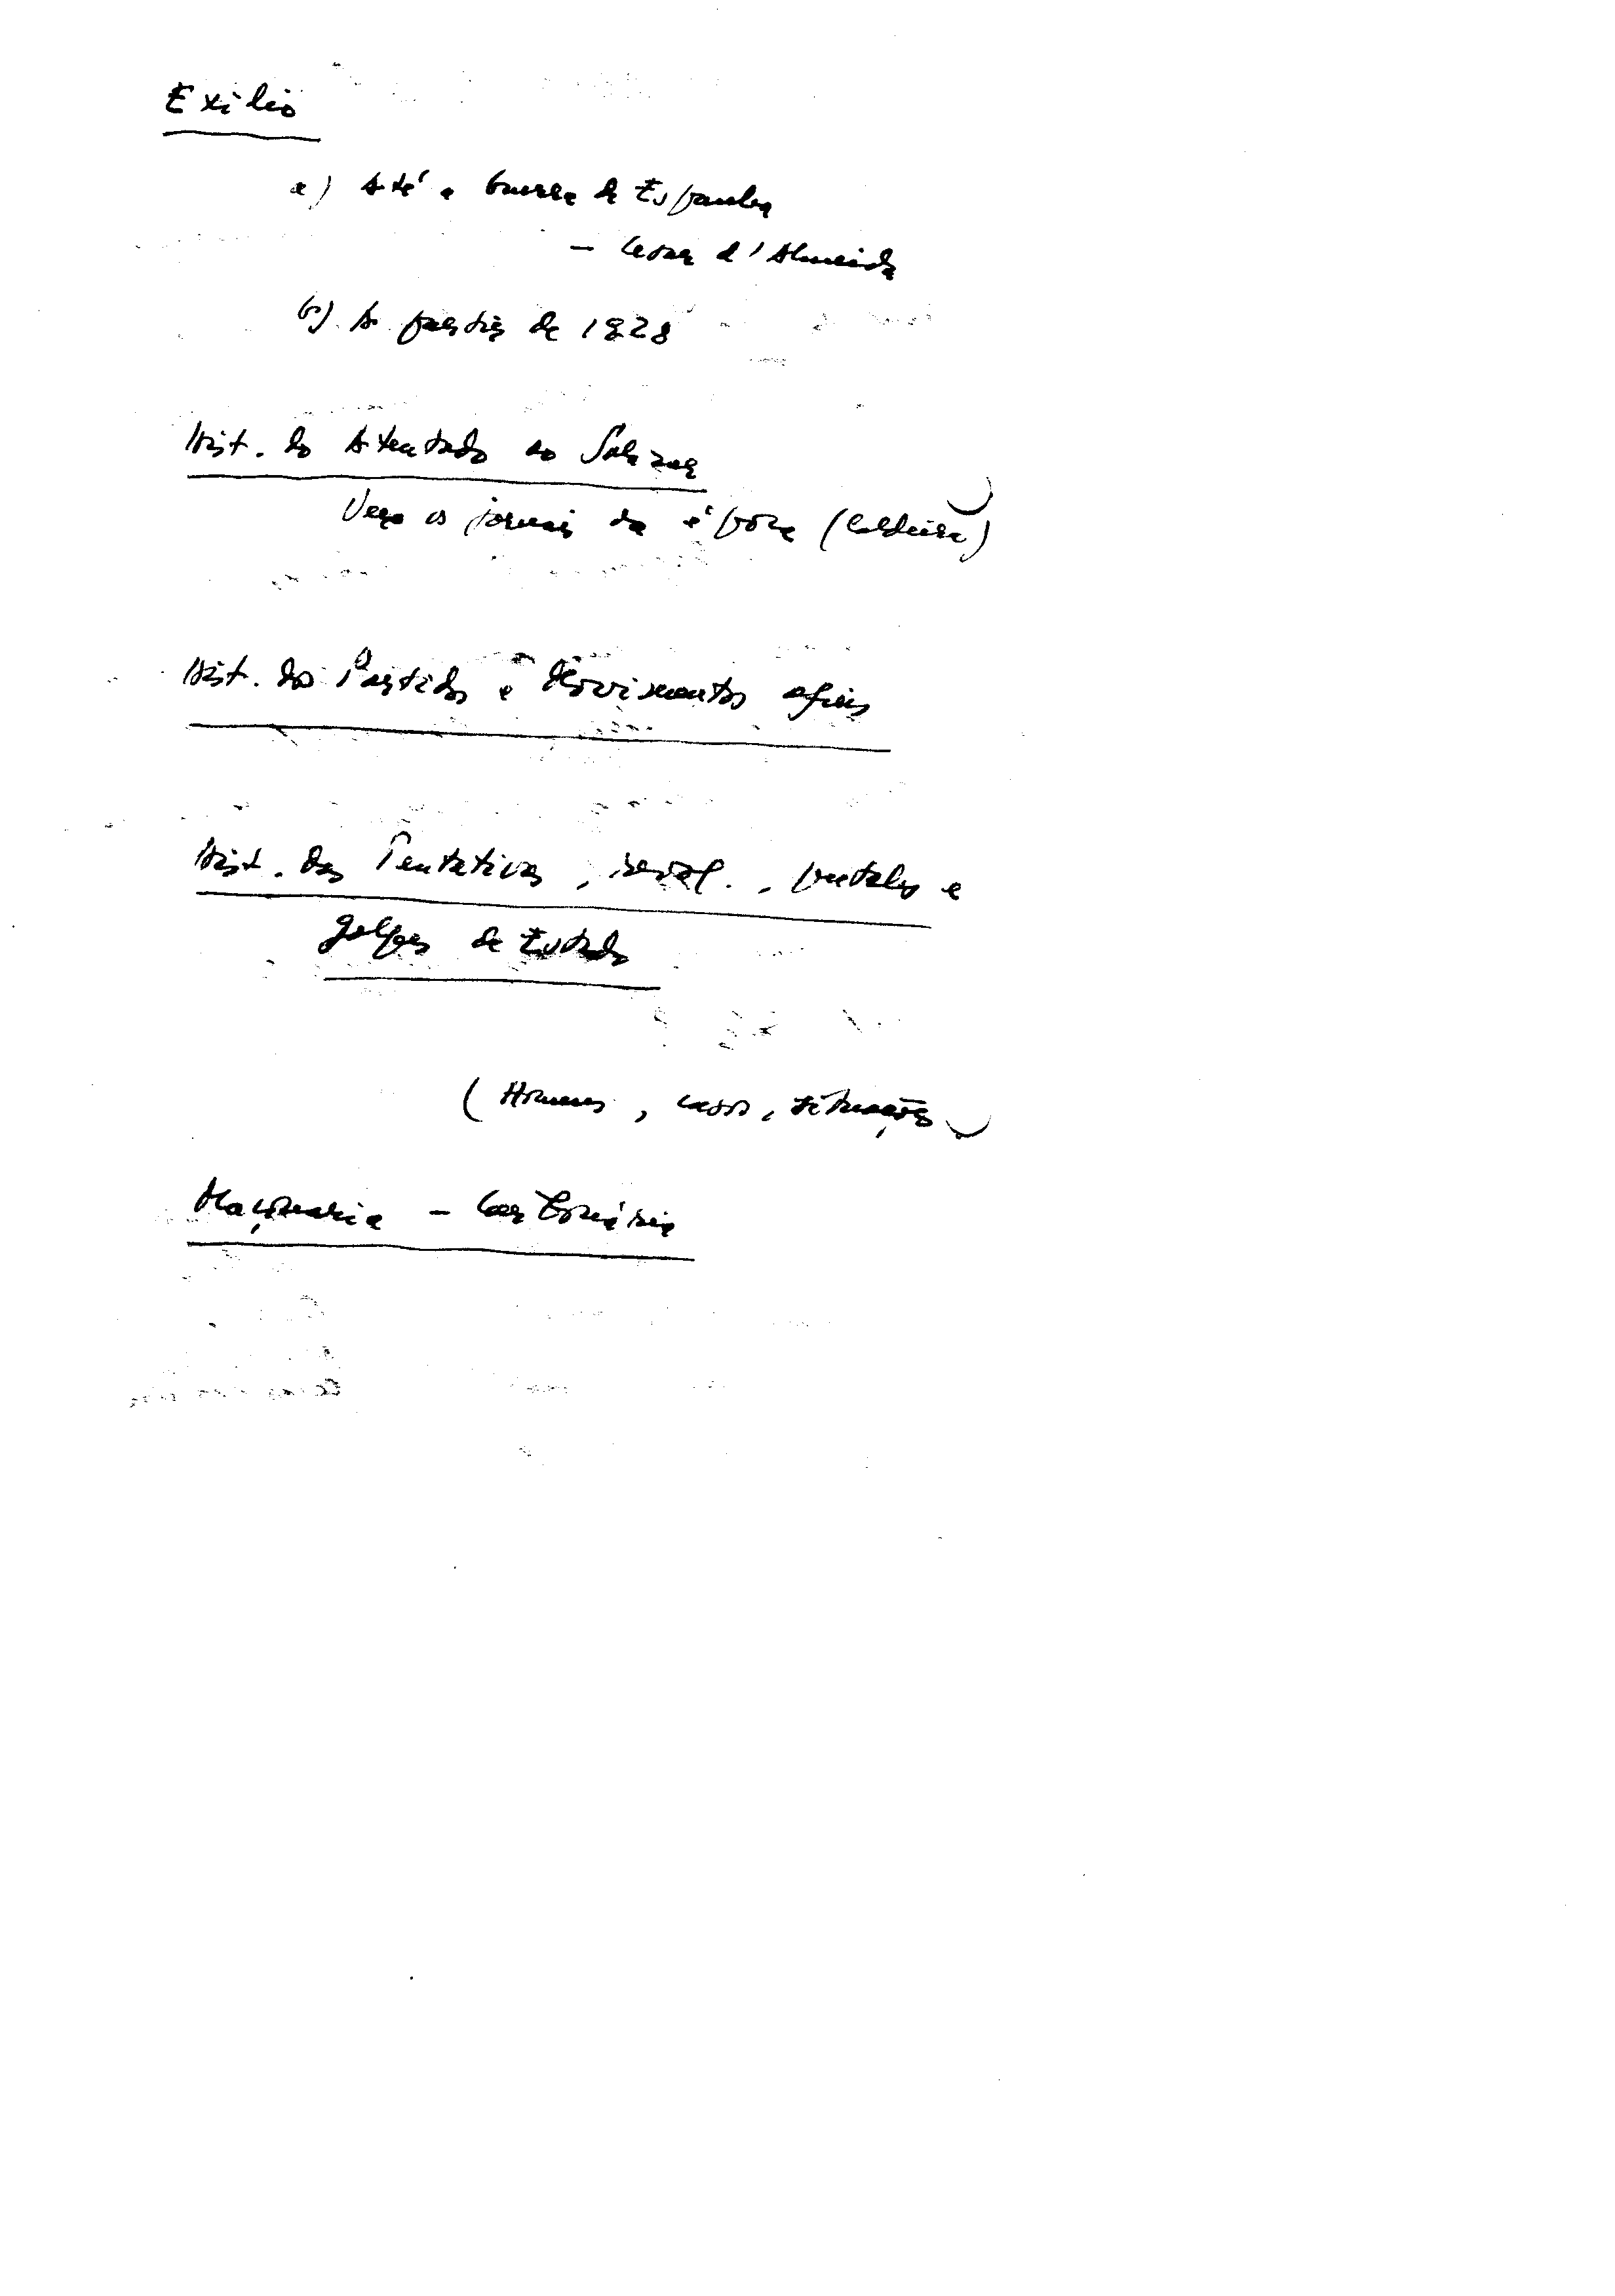 Exílio
a) Até a Guerra de Espanha
- Cesar d'Almeida
b) A partir de 1928
Hist. do Atentado ao Salazar
Veja os jornais da época (Caldeira)
Hist. dos Partidos e Movimentos afins
Hist. das Tentativas, revol., putches e
golpes de Estado
(Homens, casos, situações)
Maçonaria - Carbonária